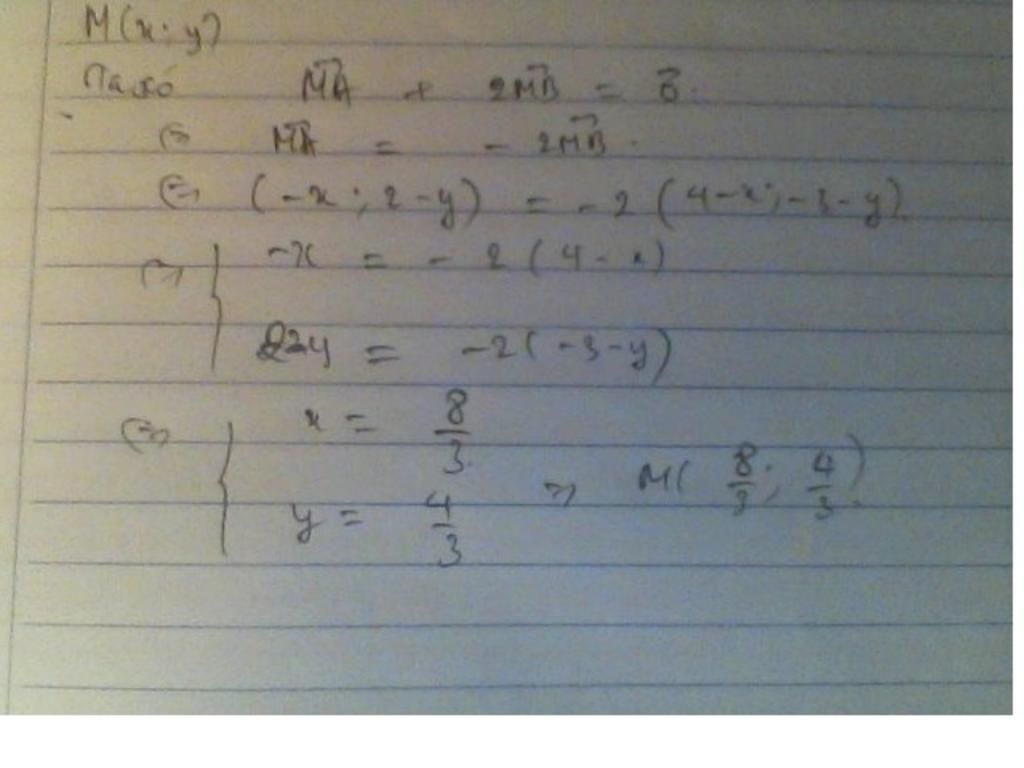 M(x; y)
Ta có MA + 2MB = 0
⇔ MA = - 2MB.
⇔ (-x; 2-y) = -2(4-x; -3-y)
⇔ { -x = - 2(4-x)
2-y = -2(-3-y)
⇔ { x = 8/3
y = 4/3 => M(8/3; 4/3).